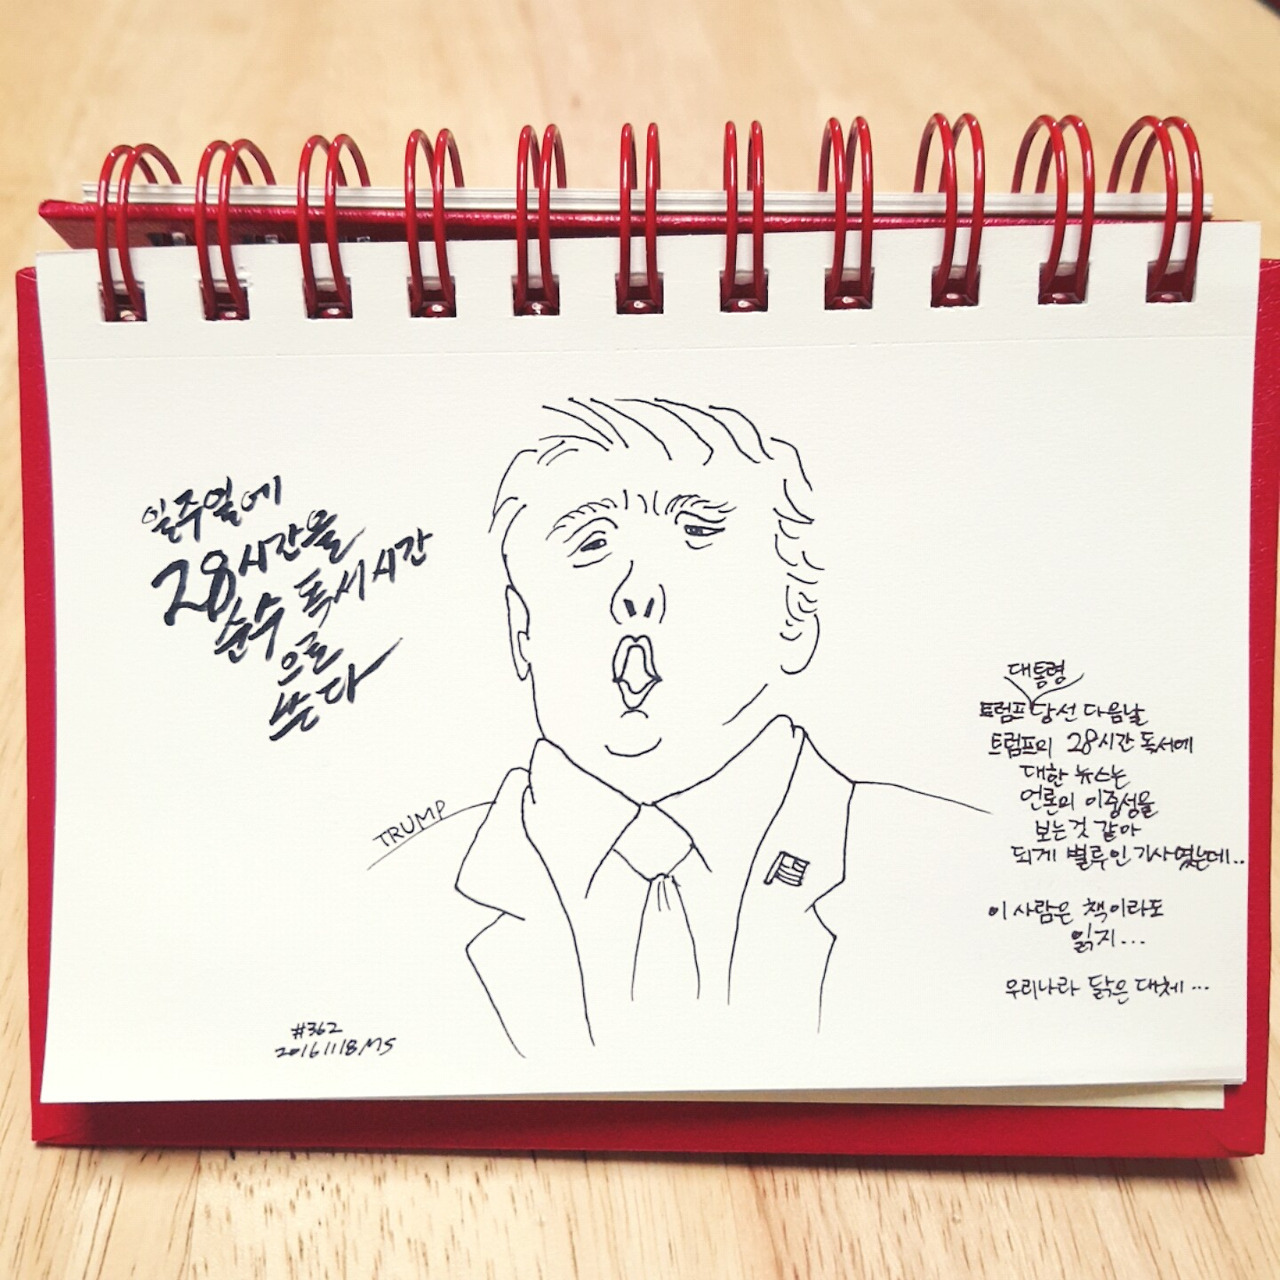 일주일에
28시간을
순수 독서시간
으로
쓴다
TRUMP
대통령
트럼프 당선 다음날
트럼프의 28시간 독서에
대한 뉴스는
언론의 이중성을
보는것 같아
되게 별루인 기사였는데..
이 사람은 책이라도
읽지...
우리나라 닭은 대체...
#362
20161118 MS